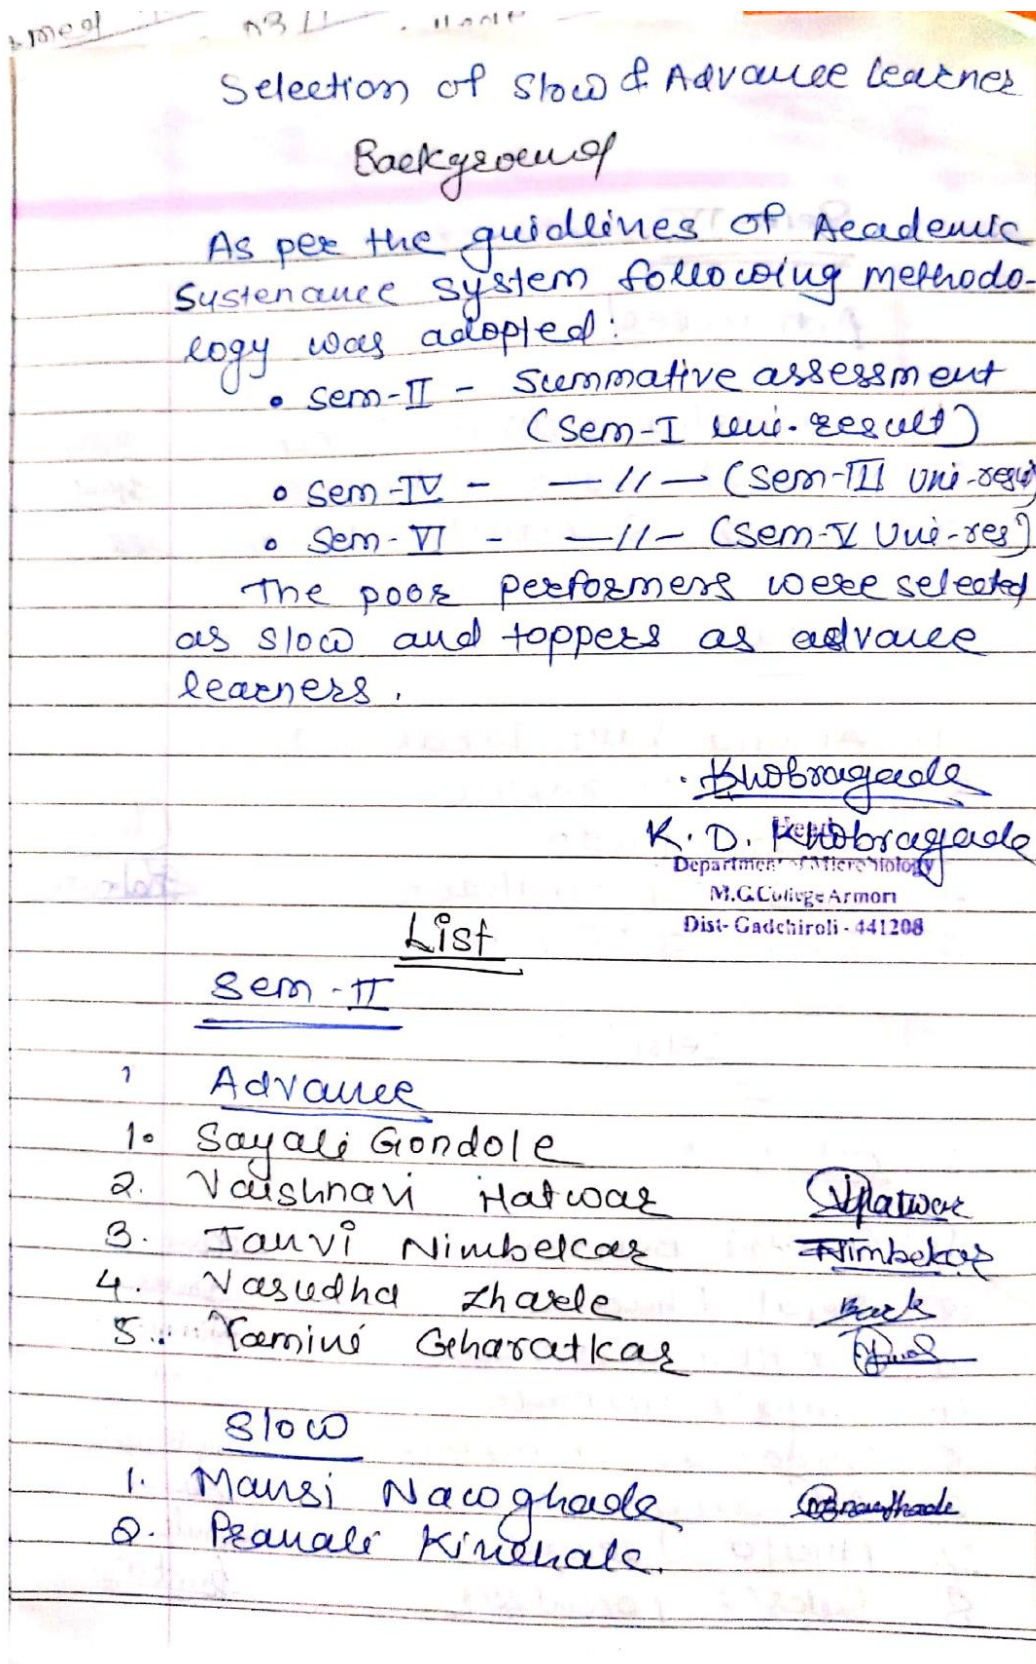 Selection of Slow & Advance learner
Background
As per the guidlines of Academic
Sustenance system following methodo-
logy was adopted:
• Sem-II - Summative assessment
(Sem-I uni-result)
• Sem-IV - —//— (Sem-III Uni-resu
• Sem-VI - —//— (Sem-V Uni-res)
The poor performers were selected
as slow and toppers as advance
learners.
Khobragade
K. D. Khobragade
Head
Department of Microbiology
M.G. College Armori
Dist- Gadchiroli - 441208
List
Sem-II
Advance
1. Sayali Gondole
2. Vaishnavi Hatwar VHatwar
3. Janvi Nimbekar Nimbekar
4. Vasudha Zhade
5. Yamini Gharatkar
Slow
1. Mansi Nawghade
2. Pranali